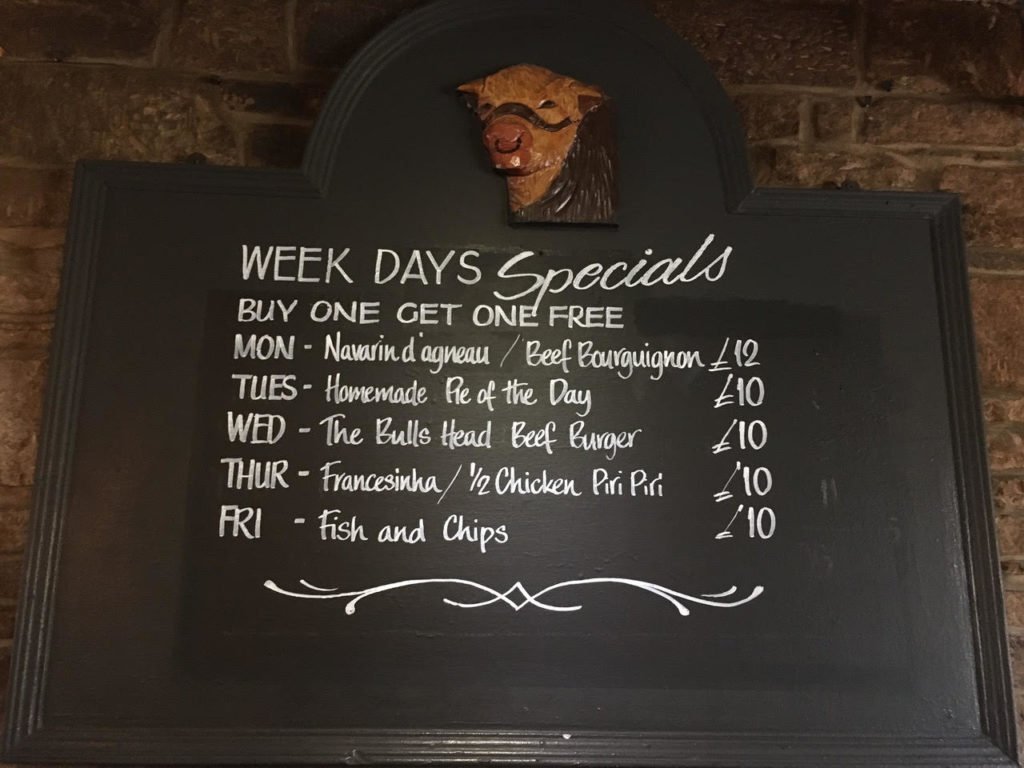 WEEK DAYS Specials
BUY ONE GET ONE FREE
MON - Navarin d'agneau / Beef Bourguignon £12
TUES - Homemade Pie of the Day £10
WED - The Bulls Head Beef Burger £10
THUR - Francesinha / ½ Chicken Piri Piri £10
FRI - Fish and Chips £10